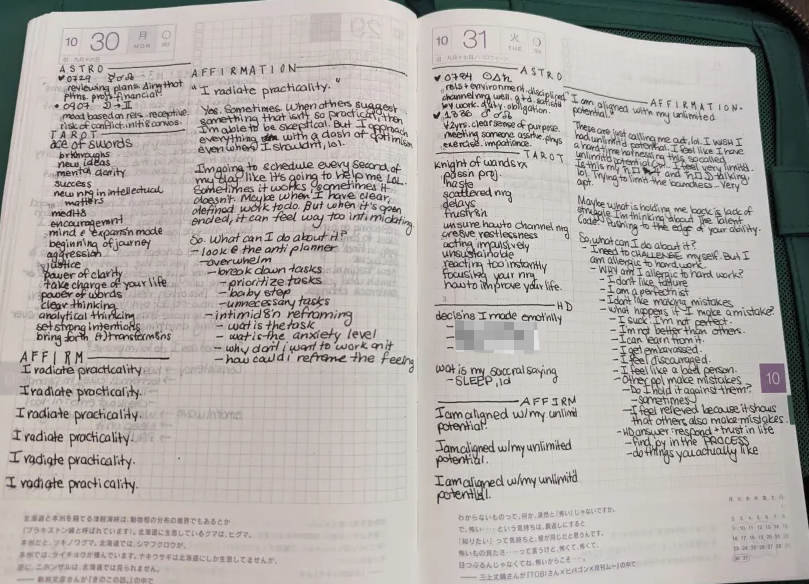 10 30 月 MON
ASTRO
♥0729
reviewing plans. doing that
ptms. profs financial.
♥0907
mood based on rels. receptive.
risk of conflict. init8 convos.
TAROT
ace of swords
brkthroughs
new ideas
mental clarity
success
new nrg in intellectual
matters
medit8
encouragement
mind expansn mode
beginning of journey
aggression
justice
power of clarity
take charge of your life
power of words
clear thinking
analytical thinking
set strong intentions
bring forth (+) transform8ns
AFFIRM
I radiate practicality
I radiate practicality.
I radiate practicality.
I radiate practicality.
I radiate practicality.
I radiate practicality.
AFFIRMATION
"I radiate practicality."
Yes. Sometimes. When others suggest
something that isn't so practical, then
I'm able to be skeptical. But I approach
everything with a dash of optimism
even when I shouldnt, lol.
I'm going to schedule every second of
my day like it's going to help me LOL.
Sometimes it works & sometimes it
doesn't. Maybe when I have clear,
defined work to do. But when it's open
ended, it can feel way too intimidating
So. What can I do about it?
- look @ the anti planner
- overwhelm
- break down tasks
- prioritize tasks
- baby step
- unnecessary tasks
- intimid8n reframing
- wat is the task
- wat is the anxiety level
- why dont i want to work on it
- how could i reframe the feeling
北海道と本州を隔てる津軽海峡は、動物相の分布の境界でもあるとか
10 31 火 TUE
ASTRO
♥0724
rels + environment. disciplined
channel nrg well. g+d. satisfd
w/ work. duty. obligation.
♥1336
♥2yrs. clear sense of purpose.
meeting someone assertive. phys
exercise. impatience.
TAROT
knight of wands rx
passion prjj
haste
scattered nrg
delays
frustr8n
unsure how to channel nrg
cre8ive restlessness
acting impulsively
unsustainable
reacting too instantly
focusing your nrg
how to improve your life.
HD
decisions I made emotnlly
wat is my sacral saying
- SLEEP, ld
AFFIRM
I am aligned w/my unlimtd
potential.
I am aligned w/my unlimited
potential.
I am aligned w/my unlimit'd
potential.
AFFIRMATION-
"I am aligned with my unlimited
potential."
These are just calling me out, lol. I wish I
had unlimited potential. I feel like I have
a hard time harnessing this so called
unlimited potential. I feel very limited.
lol. Trying to limit the boundless - very
apt.
Maybe what is holding me back is lack of
struggle. I'm thinking about The Talent
Code. Pushing to the edge of your ability.
So, what can I do about it?
- I need to CHALLENGE myself. But I
am allergic to hard work.
- WHY am I allergic to hard work?
- I don't like failure
- I am a perfectnist
- I dont like making mistakes
- what happens if I make a mistake?
- I suck. I'm not perfect.
- I'm not better than others.
- I can learn from it.
- I get embarassed.
- I feel discouraged.
- I feel like a bad person.
- Other ppl make mistakes
- Do I hold it against them?
- sometimes
- I feel relieved because it shows
that others also make mistakes.
- HD answer: respond + trust in life
- find joy in the PROCESS
- do things you actually like
10
わからないものって、何か、漠然と「怖い」じゃないですか。